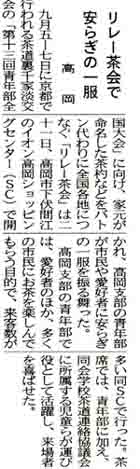 リレー茶会で
安らぎの一服
高岡
九月五―七日に京都で
行われる茶道裏千家淡交
会の「第十三回青年部全
国大会」に向け、家元が
命名した茶杓などをバト
ン代わりに全国各地につ
なぐ「リレー茶会」は二
十一日、高岡市下伏間江
のイオン高岡ショッピン
グセンター(SC)で開
かれ、高岡支部の青年部
が市民や愛好者に安らぎ
の一服を振る舞った。
高岡支部の青年部で
は、愛好者のほか、多く
の市民にお茶を楽しんで
もらう目的で、来客数が
多い同SCで行った。茶
席では、青年部に加え、
同会学校茶道連絡協議会
に所属する児童らが運び
役として活躍し、来場者
を喜ばせた。